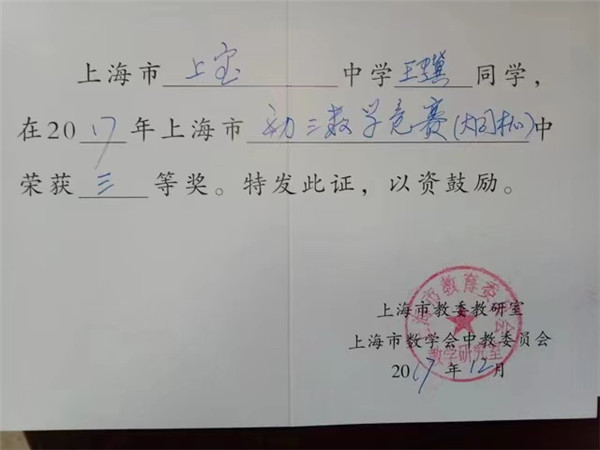 上海市 上宝 中学 王骥 同学，
在20 17 年上海市 初三数学竞赛(大同杯) 中
荣获 三 等奖。特发此证，以资鼓励。
上海市教育委员会
教学研究室
上海市教委教研室
上海市数学会中教委员会
2017年12月